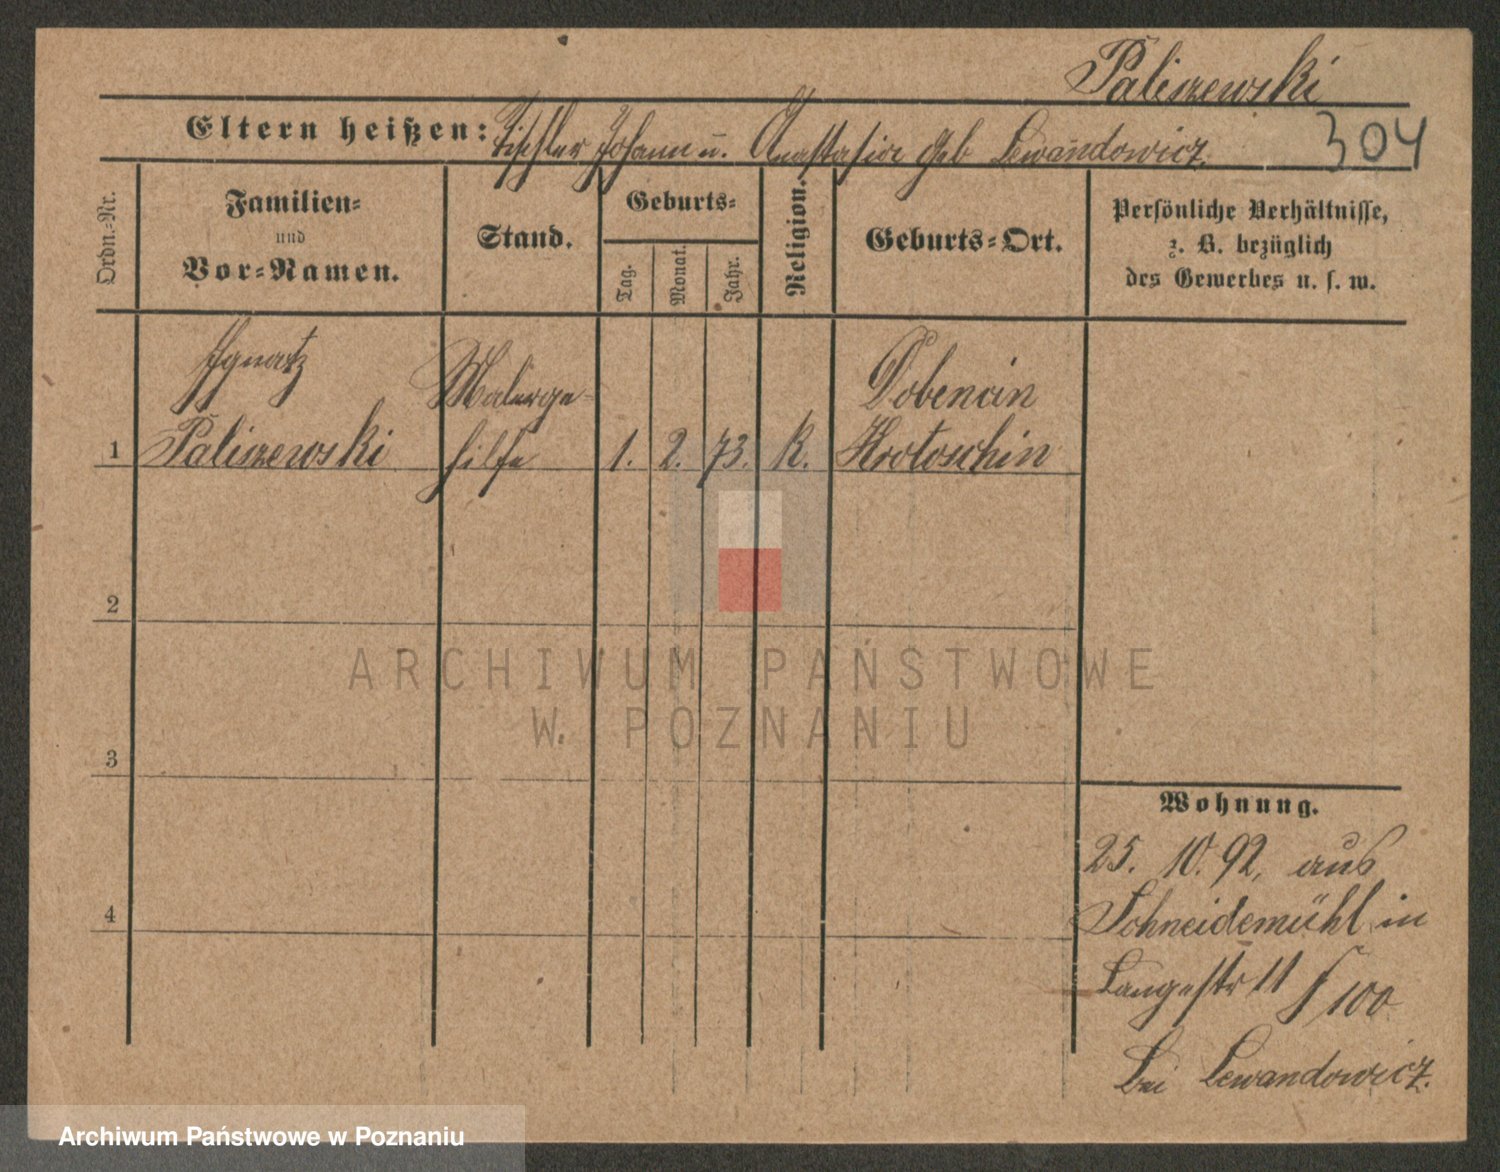 Paliszewski
304
Eltern heißen: Tischler Johann u. Anastasia geb Lewandowicz
Ordn.-Nr.
Familien-
und
Vor-Namen.
Stand.
Geburts-
Tag.
Monat.
Jahr.
Religion.
Geburts-Ort.
Persönliche Verhältnisse,
z. B. bezüglich
des Gewerbes u. s. w.
Ignatz
Malerge-
1 Paliszewski hilfe 1. 2. 73. K. Krotoschin
2
ARCHIWUM PAŃSTWOWE
W POZNANIU
3
Wohnung.
25. 10. 92, aus
Schneidemühl in
4
Langestr 11
100
bei Lewandowicz.
Archiwum Państwowe w Poznaniu